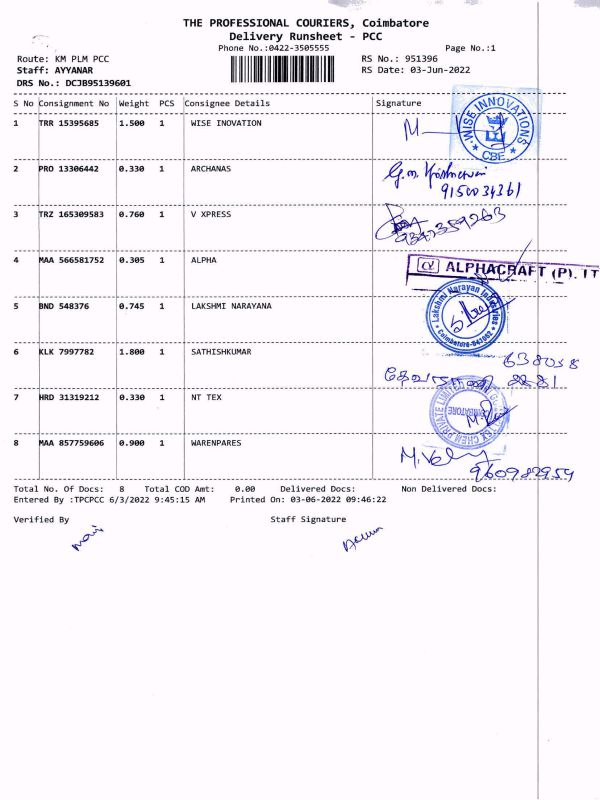 THE PROFESSIONAL COURIERS, Coimbatore
Delivery Runsheet - PCC
Phone No.:0422-3505555 Page No.:1
Route: KM PLM PCC RS No.: 951396
Staff: AYYANAR RS Date: 03-Jun-2022
DRS No.: DCJB95139601
S No Consignment No Weight PCS Consignee Details Signature
1 TRR 15395685 1.500 1 WISE INOVATION
WISE INNOVATIONS
CBE
2 PRO 13306442 0.330 1 ARCHANAS
9150034361
3 TRZ 165309583 0.760 1 V XPRESS
9342359263
4 MAA 566581752 0.305 1 ALPHA
ALPHACRAFT (P). LT
5 BND 548376 0.745 1 LAKSHMI NARAYANA
Lakshmi Narayan Industries
6 KLK 7997782 1.800 1 SATHISHKUMAR
638058
7 HRD 31319212 0.330 1 NT TEX
8 MAA 857759606 0.900 1 WARENPARES
Total No. Of Docs: 8 Total COD Amt: 0.00 Delivered Docs: Non Delivered Docs:
Entered By :TPCPCC 6/3/2022 9:45:15 AM Printed On: 03-06-2022 09:46:22
Verified By Staff Signature